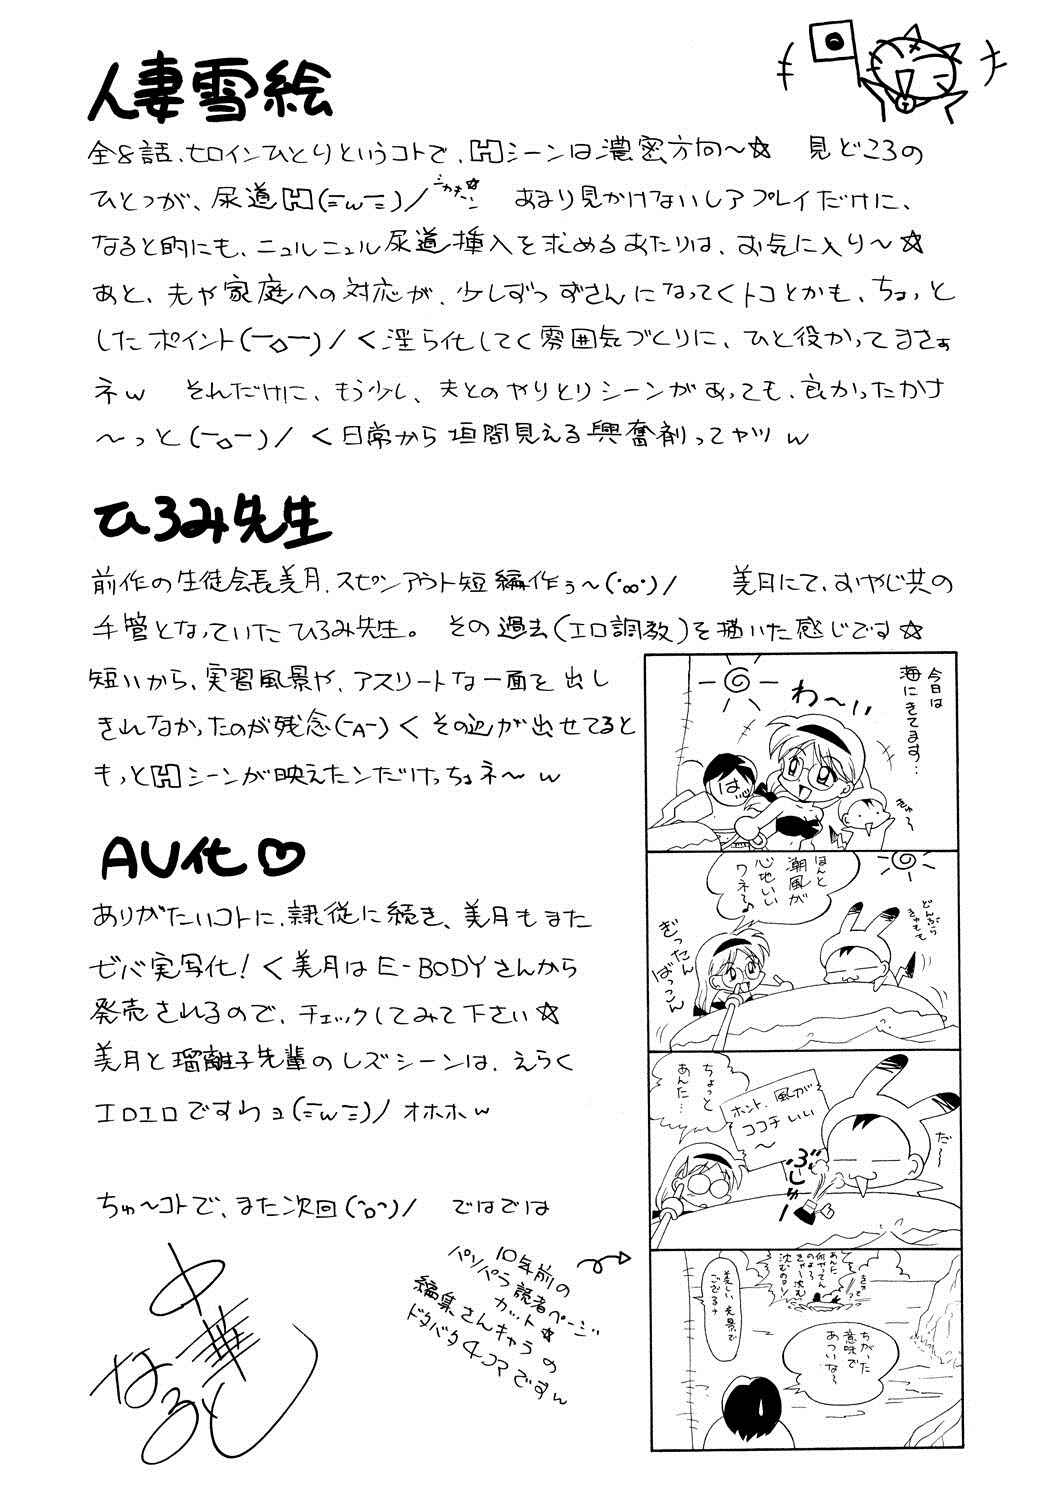 人妻雪絵
全8話、ヒロインひとりというコトで、Hシーンは濃密方向〜☆ 見どころの
ひとつが、尿道H(ΞwΞ)/ ジカキーン☆ あまり見かけないレアプレイだけに、
なると的にも、ニュルニュル尿道挿入を求めるあたりは、お気に入り〜☆
あと、夫や家庭への対応が、少しずつずさんになってくトコとかも、ちょっと
したポイント(ー○ー)/く淫ら化してく雰囲気づくりに、ひと役かってますぁ
ネw それだけに、もう少し、夫とのやりとりシーンがあっても、良かったかナ
〜っと(ー○ー)/く日常から垣間見える興奮剤ってヤツw
ひろみ先生
前作の生徒会長美月、スピンアウト短編作ぅ〜(・∞・)/ 美月にて、おやじ共の
手管となっていたひろみ先生。その過去(エロ調教)を描いた感じです☆
短いから、実習風景や、アスリートな一面を出し
きれなかったのが残念(ーAー)くその辺が出せてると
もっとHシーンが映えたンだけっちょネ〜w
AV化♡
ありがたいコトに、隷従に続き、美月もまた
ゼバ実写化!く美月はE-BODYさんから
発売されるので、チェックしてみて下さい☆
美月と瑠離子先輩のレズシーンは、えらく
エロエロですわョ(ΞwΞ)/オホホw
ちゅ〜コトで、また次回(^o^)/ ではでは
中華なると
10年前の
パソパラ読者ページ
カット☆
編集さんキャラの
ドタバタ4コマですw
今日は
海にきてます…
わ〜い
は〜い
きゅ〜
ほんと
潮風が
心地いい
ワネ〜♪
どんぶら
きゅもも
ぎったん
ばっこん
ちょっと
あんた…
ホント、風が
ココチいい
〜
だ〜
ぶしゅー
きゅ?
あんた
何やってん
のよ〜
きゃー沈む
沈むのョ!
美しい光景で
ござるナ
ちがった
意味で
あついな〜